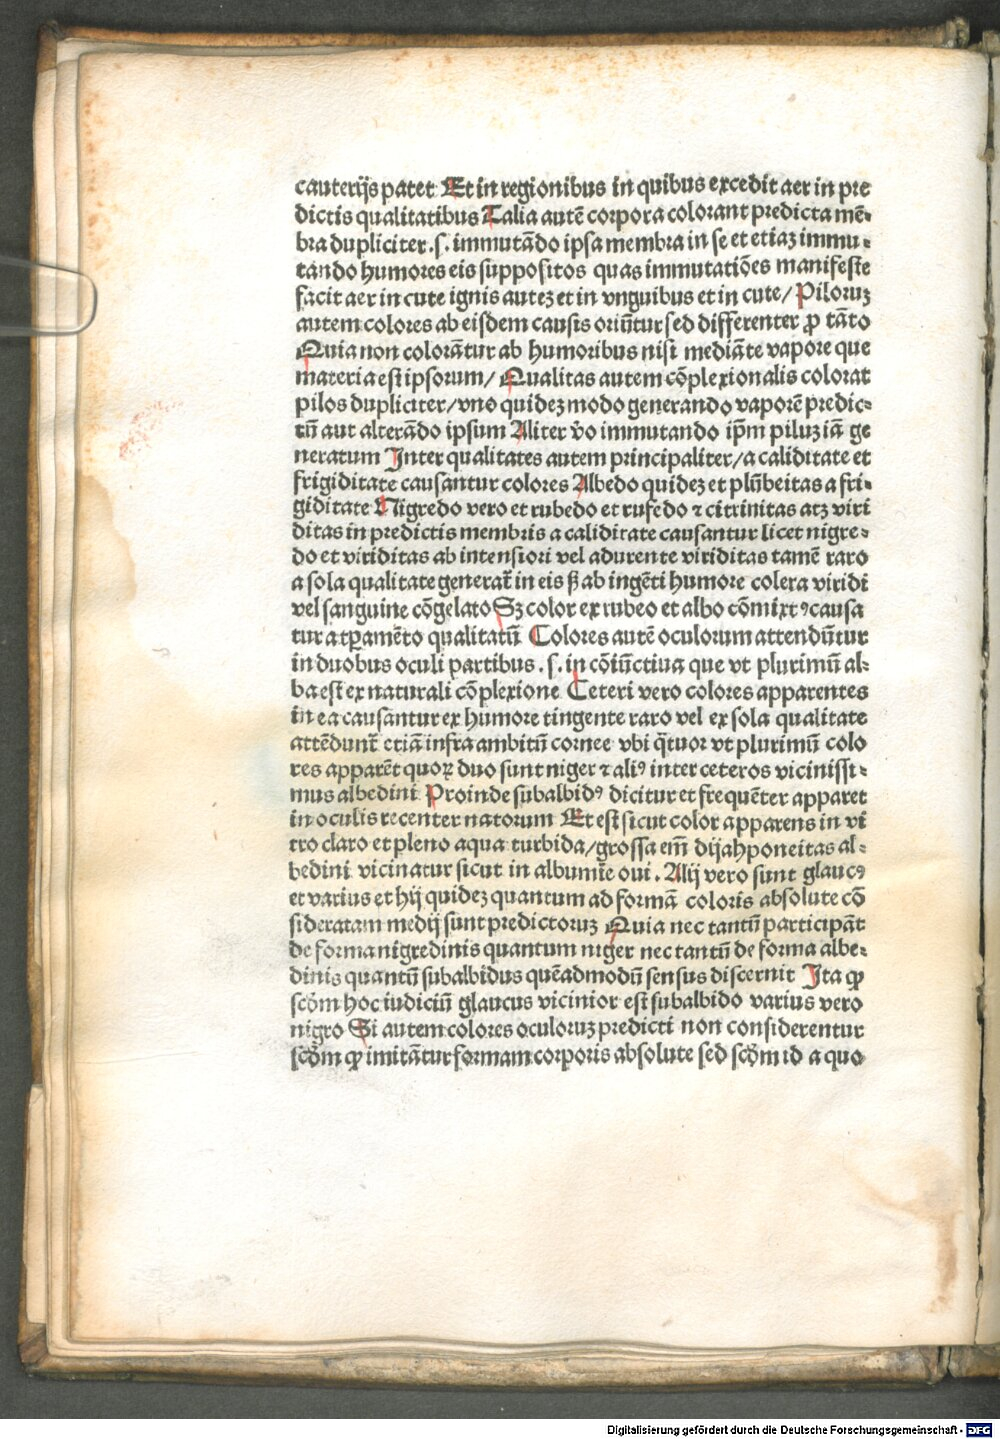 cauterijs patet Et in regionibus in quibus excedit aer in pre
dictis qualitatibus Talia autē corpora colorant predicta mē-
bra dupliciter .s. immutādo ipsa membra in se et etiaꝫ immu-
tando humores eis suppositos quas immutatiōes manifeste
facit aer in cute ignis auteꝫ et in vnguibus et in cute/ Piloruꝫ
autem colores ab eisdem causis oriūtur sed differenter ꝓ tāto
Quia non colorātur ab humoribus nisi mediāte vapore que
materia est ipsorum/ Qualitas autem cōplexionalis colorat
pilos dupliciter/vno quideꝫ modo generando vaporē predic-
tū aut alterādo ipsum Aliter v̄o immutando ip̄m piluꝫ iā ge
neratum Inter qualitates autem principaliter/a caliditate et
frigiditate causantur colores Albedo quideꝫ et plūbeitas a fri-
giditate Nigredo vero et rubedo et rufedo ⁊ citrinitas atꝫ viri
ditas in predictis membris a caliditate causantur licet nigre-
do et viriditas ab intensiori vel adurente viriditas tamē raro
a sola qualitate generat̄ in eis ꝟ ab ingēti humore colera viridi
vel sanguine cōgelato Sꝫ color ex rubeo et albo cōmixtꝰ causa
tur a tꝑamēto qualitatū Colores autē oculorum attendūtur
in duobus oculi partibus .s. in cōiūctiua que vt plurimū al-
ba est ex naturali cōplexione Ceteri vero colores apparentes
in ea causantur ex humore tingente raro vel ex sola qualitate
attēdunt̄ etiā infra ambitū cornee vbi q̄tuor vt plurimū colo
res apparēt quoꝝ duo sunt niger ⁊ aliꝰ inter ceteros vicinissi-
mus albedini Proinde subalbidꝰ dicitur et frequēter apparet
in oculis recenter natorum Et est sicut color apparens in vi
tro claro et pleno aqua turbida/grossa em̄ dijahponeitas al-
bedini vicinatur sicut in albumīe oui . Alij vero sunt glaucꝰ
et varius et hij quideꝫ quantum ad formā coloris absolute cō
sideratam medij sunt predictoruꝫ Quia nec tantū participāt
de forma nigredinis quantum niger nec tantū de forma albe-
dinis quantū subalbidus quēadmodū sensus discernit Ita ꝙ
scd̄m hoc iudiciū glaucus vicinior est subalbido varius vero
nigro Si autem colores oculoruꝫ predicti non considerentur
scd̄m ꝙ imitātur formam corporis absolute sed scd̄m id a quo
Digitalisierung gefördert durch die Deutsche Forschungsgemeinschaft - DFG